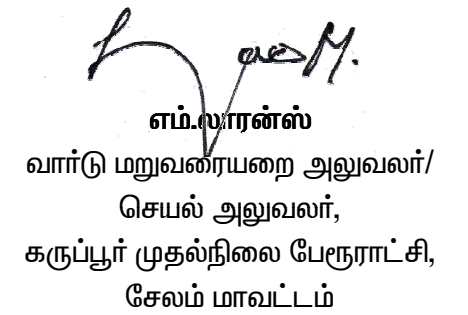 எம்.லாரன்ஸ்
வார்டு மறுவரையறை அலுவலர்/
செயல் அலுவலர்,
கருப்பூர் முதல்நிலை பேரூராட்சி,
சேலம் மாவட்டம்